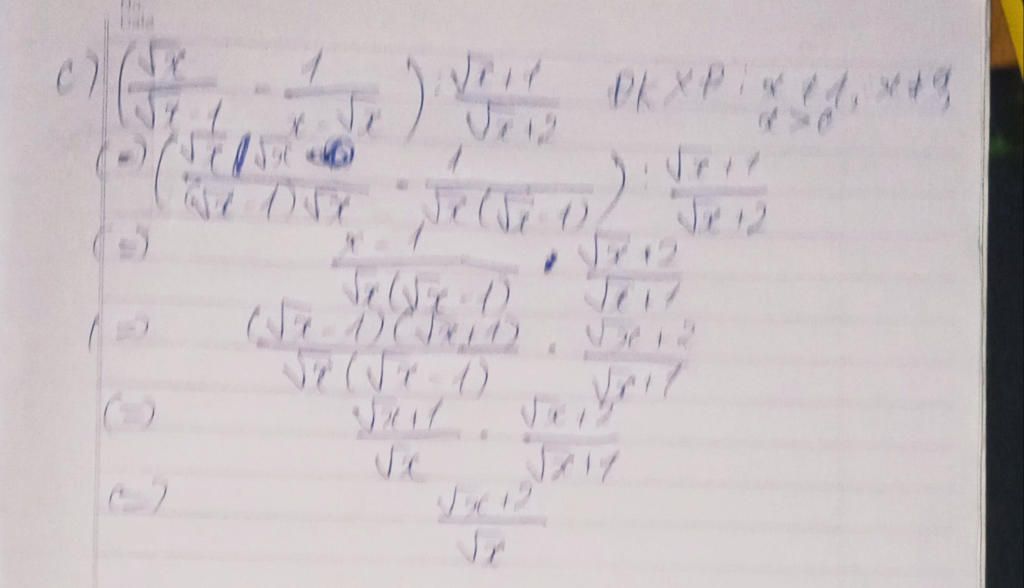 c) (√x/(√x - 1) - 1/(x - √x)) : (√x+1)/(√x+2) ĐKXĐ: x ≠ 1; x ≠ 9,
x > 0
(=) (√x √x/((√x - 1)√x) - 1/(√x(√x - 1))) : (√x+1)/(√x+2)
(=) (x - 1)/(√x(√x - 1)) · (√x+2)/(√x+1)
(=) (√x - 1)(√x+1)/(√x(√x - 1)) · (√x+2)/(√x+1)
(=) (√x+1)/√x · (√x+2)/(√x+1)
(=) (√x+2)/√x